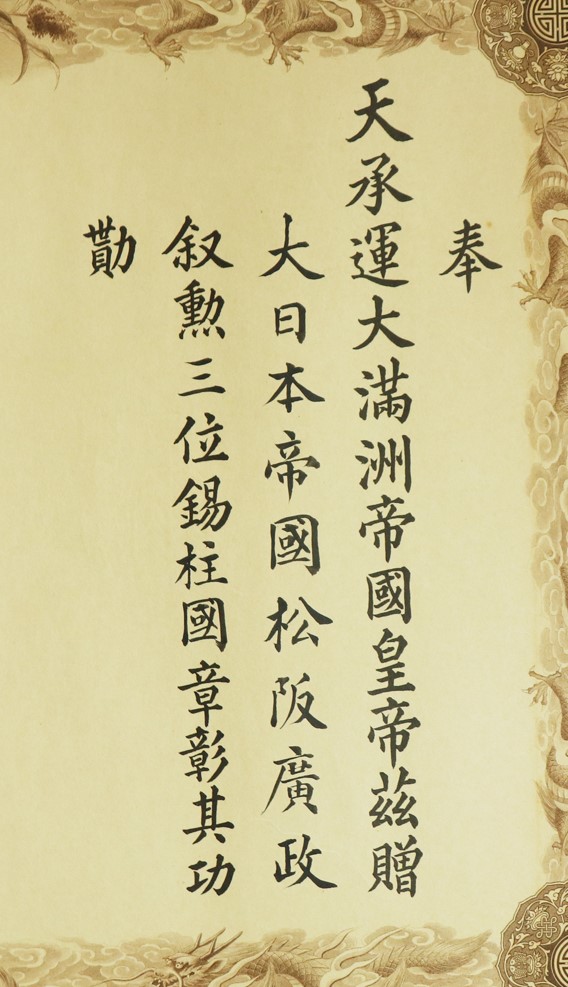 奉
天承運大滿洲帝國皇帝茲贈
大日本帝國松阪廣政
叙勲三位錫柱國章彰其功
勩